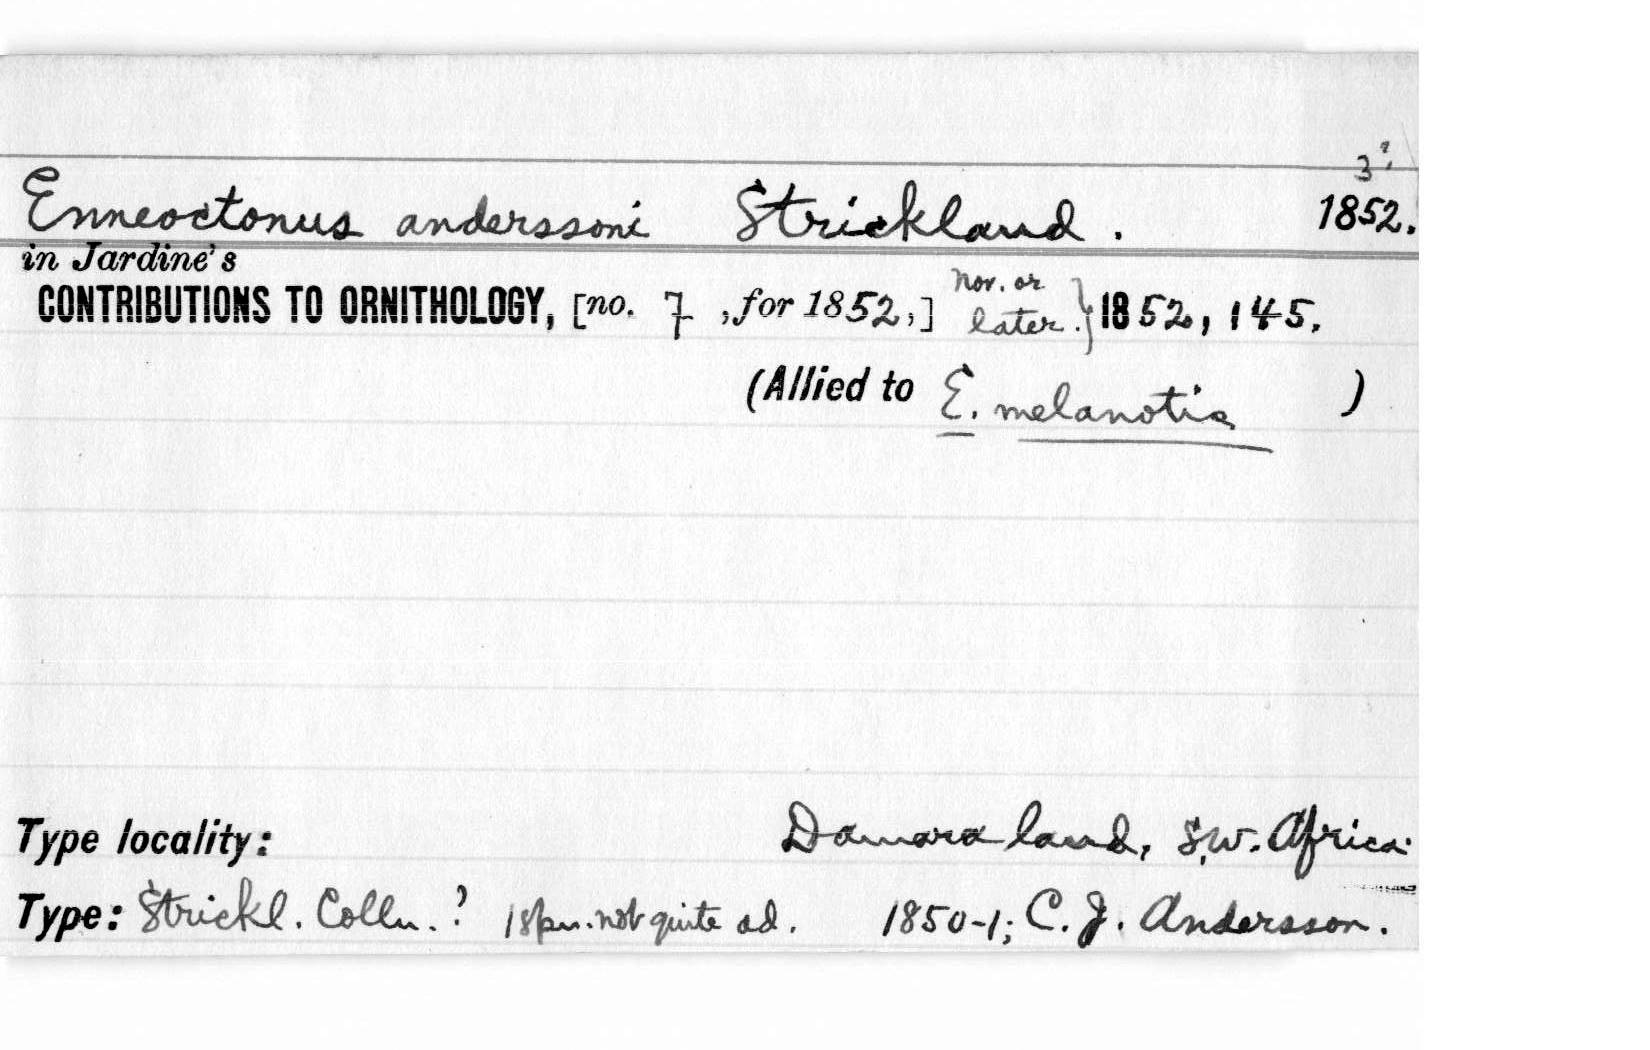 3?
Enneoctonus anderssoni Strickland. 1852.
in Jardine's
CONTRIBUTIONS TO ORNITHOLOGY, [no. 7, for 1852,] Nov. or later.} 1852, 145.
(Allied to E. melanotis)
Type locality: Damaraland, S.W. Africa.
Type: Strickl. Colln.? 1 spn. not quite ad. 1850-1; C. J. Andersson.